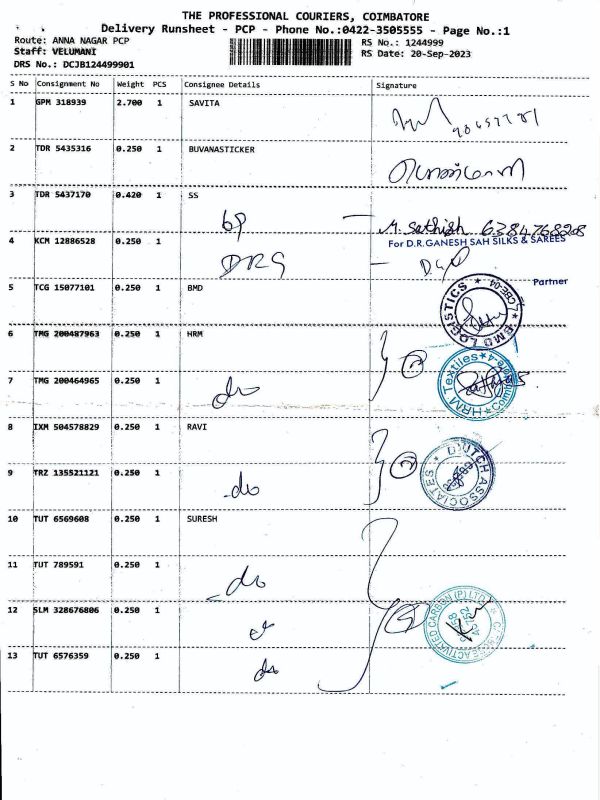 THE PROFESSIONAL COURIERS, COIMBATORE
Delivery Runsheet - PCP - Phone No.:0422-3505555 - Page No.:1
Route: ANNA NAGAR PCP
RS No.: 1244999
Staff: VELUMANI
RS Date: 20-Sep-2023
DRS No.: DCJB124499901
S No Consignment No Weight PCS Consignee Details Signature
1 GPM 318939 2.700 1 SAVITA
2 TDR 5435316 0.250 1 BUVANASTICKER
3 TDR 5437170 0.420 1 SS
M. Sathish 6384768208
For D.R.GANESH SAH SILKS & SAREES
4 KCM 12886528 0.250 1 DRG
Partner
5 TCG 15077101 0.250 1 BMD
BMD LOGISTICS * CBE-04
6 TMG 200487963 0.250 1 HRM 2
HRM Textiles
7 TMG 200464965 0.250 1 do
8 IXM 504578829 0.250 1 RAVI
2
DUTCH ASSOCIATES
9 TRZ 135521121 0.250 1 do
10 TUT 6569608 0.250 1 SURESH
11 TUT 789591 0.250 1 do
12 SLM 328676806 0.250 1
ACTIVATED CARBON (P) LTD
13 TUT 6576359 0.250 1 do